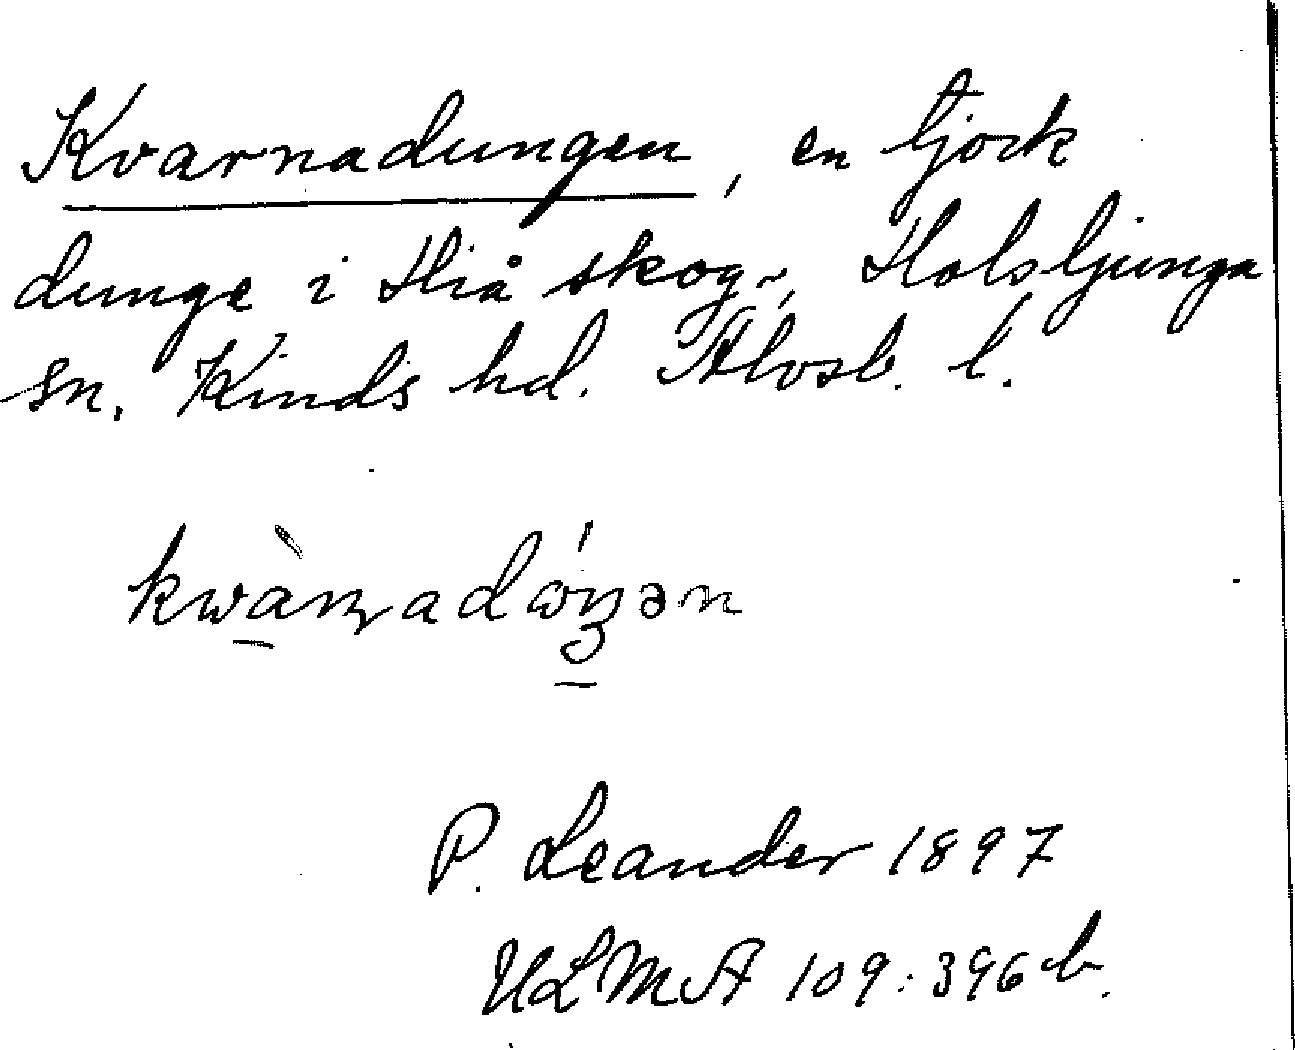 Kvarnadungen, en tjock
dunge i Hiå skog, Holsljunga
sn. Kinds hd. Älvsb. l.
P. Leander 1897
ULMA 109:396 b.